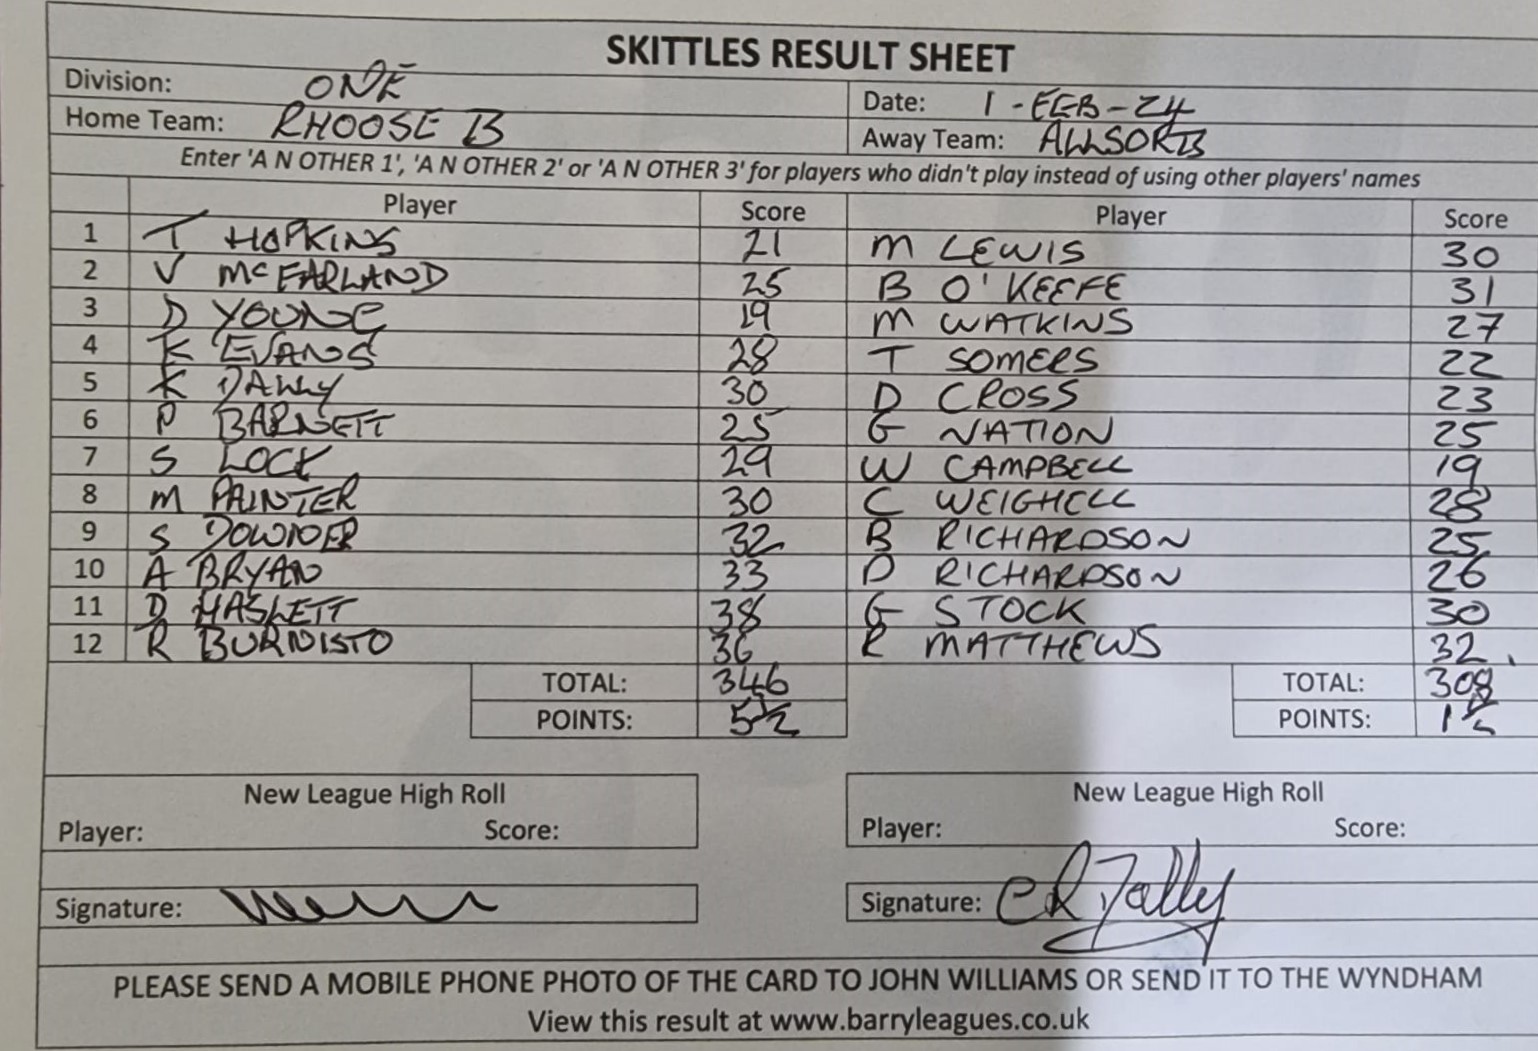 SKITTLES RESULT SHEET
Division: ONE Date: 1-FEB-24
Home Team: RHOOSE B Away Team: ALLSORTS
Enter 'A N OTHER 1', 'A N OTHER 2' or 'A N OTHER 3' for players who didn't play instead of using other players' names
Player Score Player Score
1 T HOPKINS 21 M LEWIS 30
2 V McFARLAND 25 B O'KEEFE 31
3 D YOUNG 19 M WATKINS 27
4 K EVANS 28 T SOMERS 22
5 K DALLY 30 D CROSS 23
6 P BARNETT 25 G NATION 25
7 S LOCK 29 W CAMPBELL 19
8 M PAINTER 30 C WEIGHELL 28
9 S DOWNER 32 B RICHARDSON 25
10 A BRYAN 33 D RICHARDSON 26
11 D HASLETT 38 G STOCK 30
12 R BURNISTO 36 R MATTHEWS 32
TOTAL: 346 TOTAL: 308
POINTS: 5½ POINTS: 1½
New League High Roll New League High Roll
Player: Score: Player: Score:
Signature: Signature:
PLEASE SEND A MOBILE PHONE PHOTO OF THE CARD TO JOHN WILLIAMS OR SEND IT TO THE WYNDHAM
View this result at www.barryleagues.co.uk